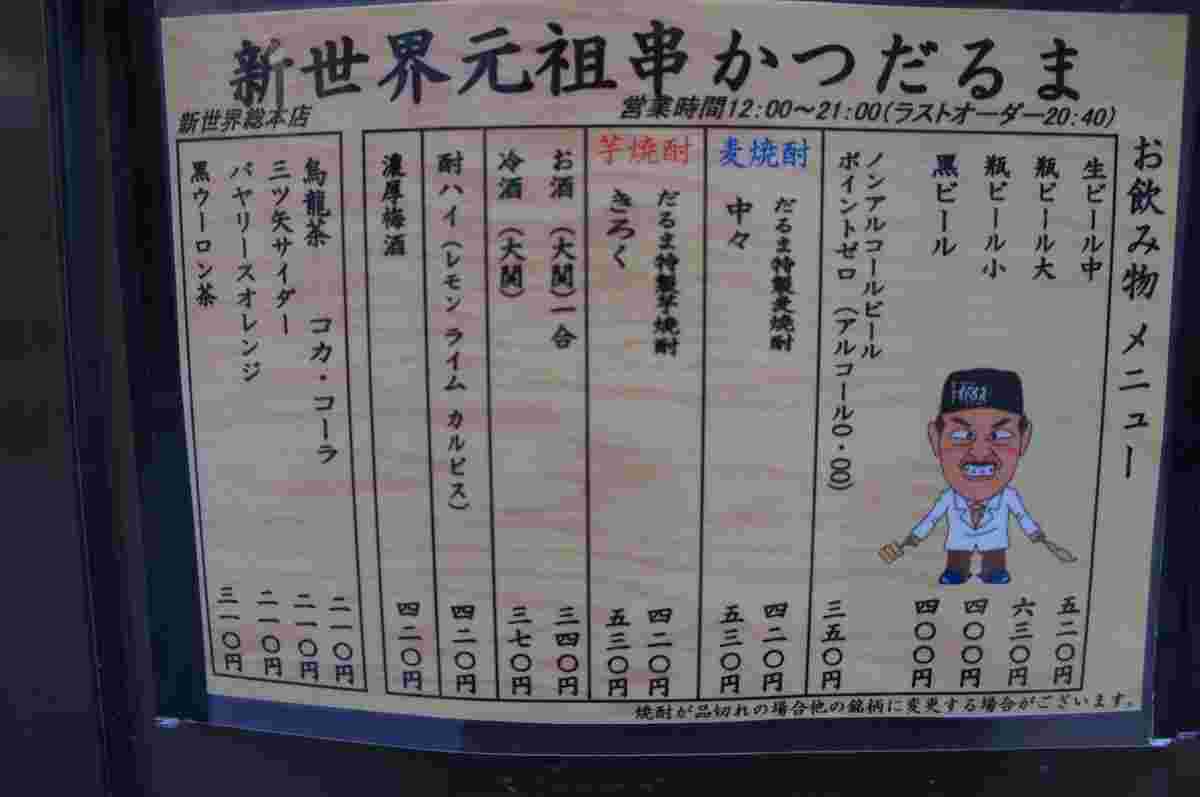 新世界元祖串かつだるま
新世界総本店
営業時間12:00〜21:00(ラストオーダー20:40)
お飲み物 メニュー
生ビール中 五二〇円
瓶ビール大 六三〇円
瓶ビール小 四〇〇円
黒ビール 四〇〇円
ノンアルコールビール
ポイントゼロ (アルコール0・00) 三五〇円
麦焼酎
だるま特製麦焼酎 四二〇円
中々 五三〇円
芋焼酎
だるま特製芋焼酎 四二〇円
きろく 五三〇円
お酒 (大関)一合 三四〇円
冷酒 (大関) 三七〇円
酎ハイ (レモン ライム カルピス) 四二〇円
濃厚梅酒 四二〇円
烏龍茶 コカ・コーラ 二一〇円
三ツ矢サイダー 二一〇円
バヤリースオレンジ 二一〇円
黒ウーロン茶 三一〇円
焼酎が品切れの場合他の銘柄に変更する場合がございます。